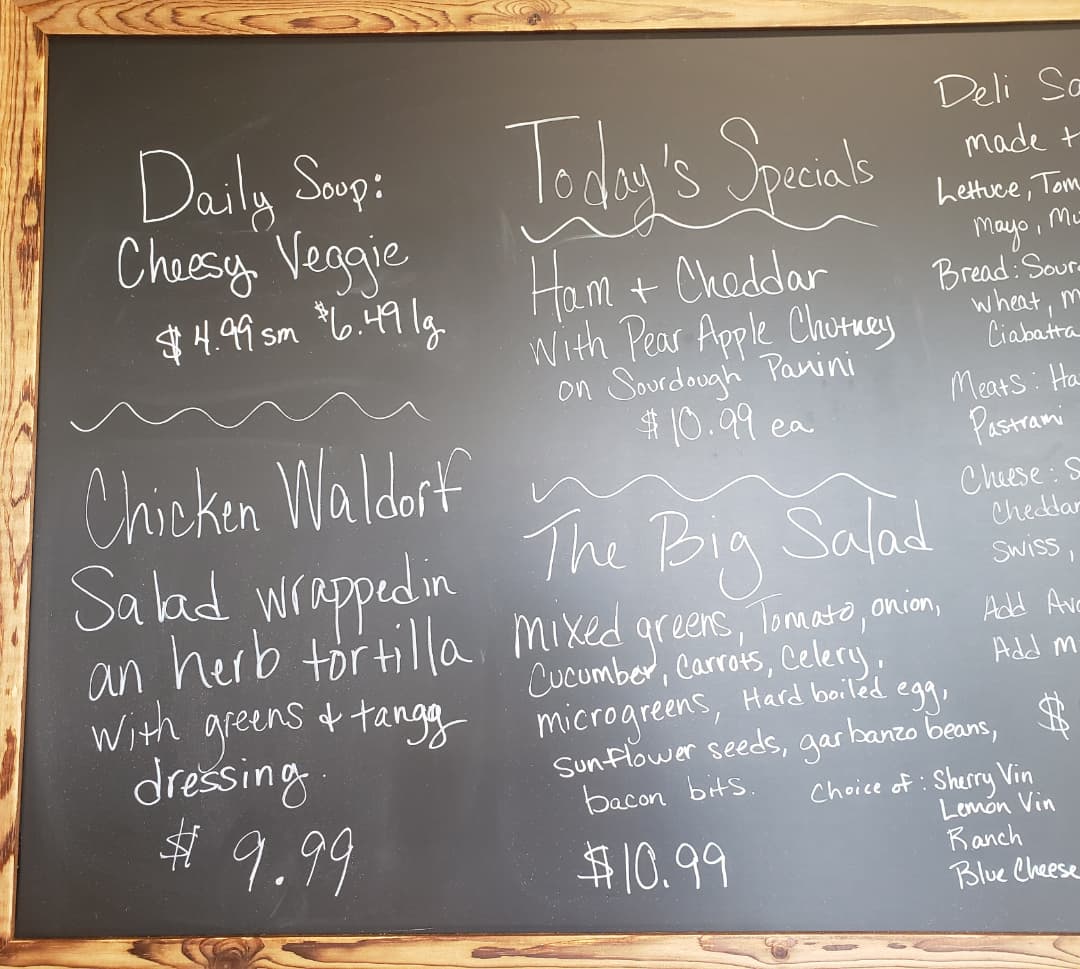 Daily Soup:
Cheesy Veggie
$4.99 sm $6.49 lg
Chicken Waldorf
Salad wrapped in
an herb tortilla
with greens & tangy
dressing.
$9.99
Today's Specials
Ham + Cheddar
With Pear Apple Chutney
on Sourdough Panini
$10.99 ea
The Big Salad
mixed greens, Tomato, onion,
Cucumber, Carrots, Celery,
microgreens, Hard boiled egg,
sunflower seeds, garbanzo beans,
bacon bits.
$10.99
Choice of: Sherry Vin
Lemon Vin
Ranch
Blue Cheese
Deli
made
Lettuce,
mayo,
Bread:
wheat,
Ciabatta
Meats:
Pastrami
Cheese:
Cheddar
Swiss,
Add
Add
$